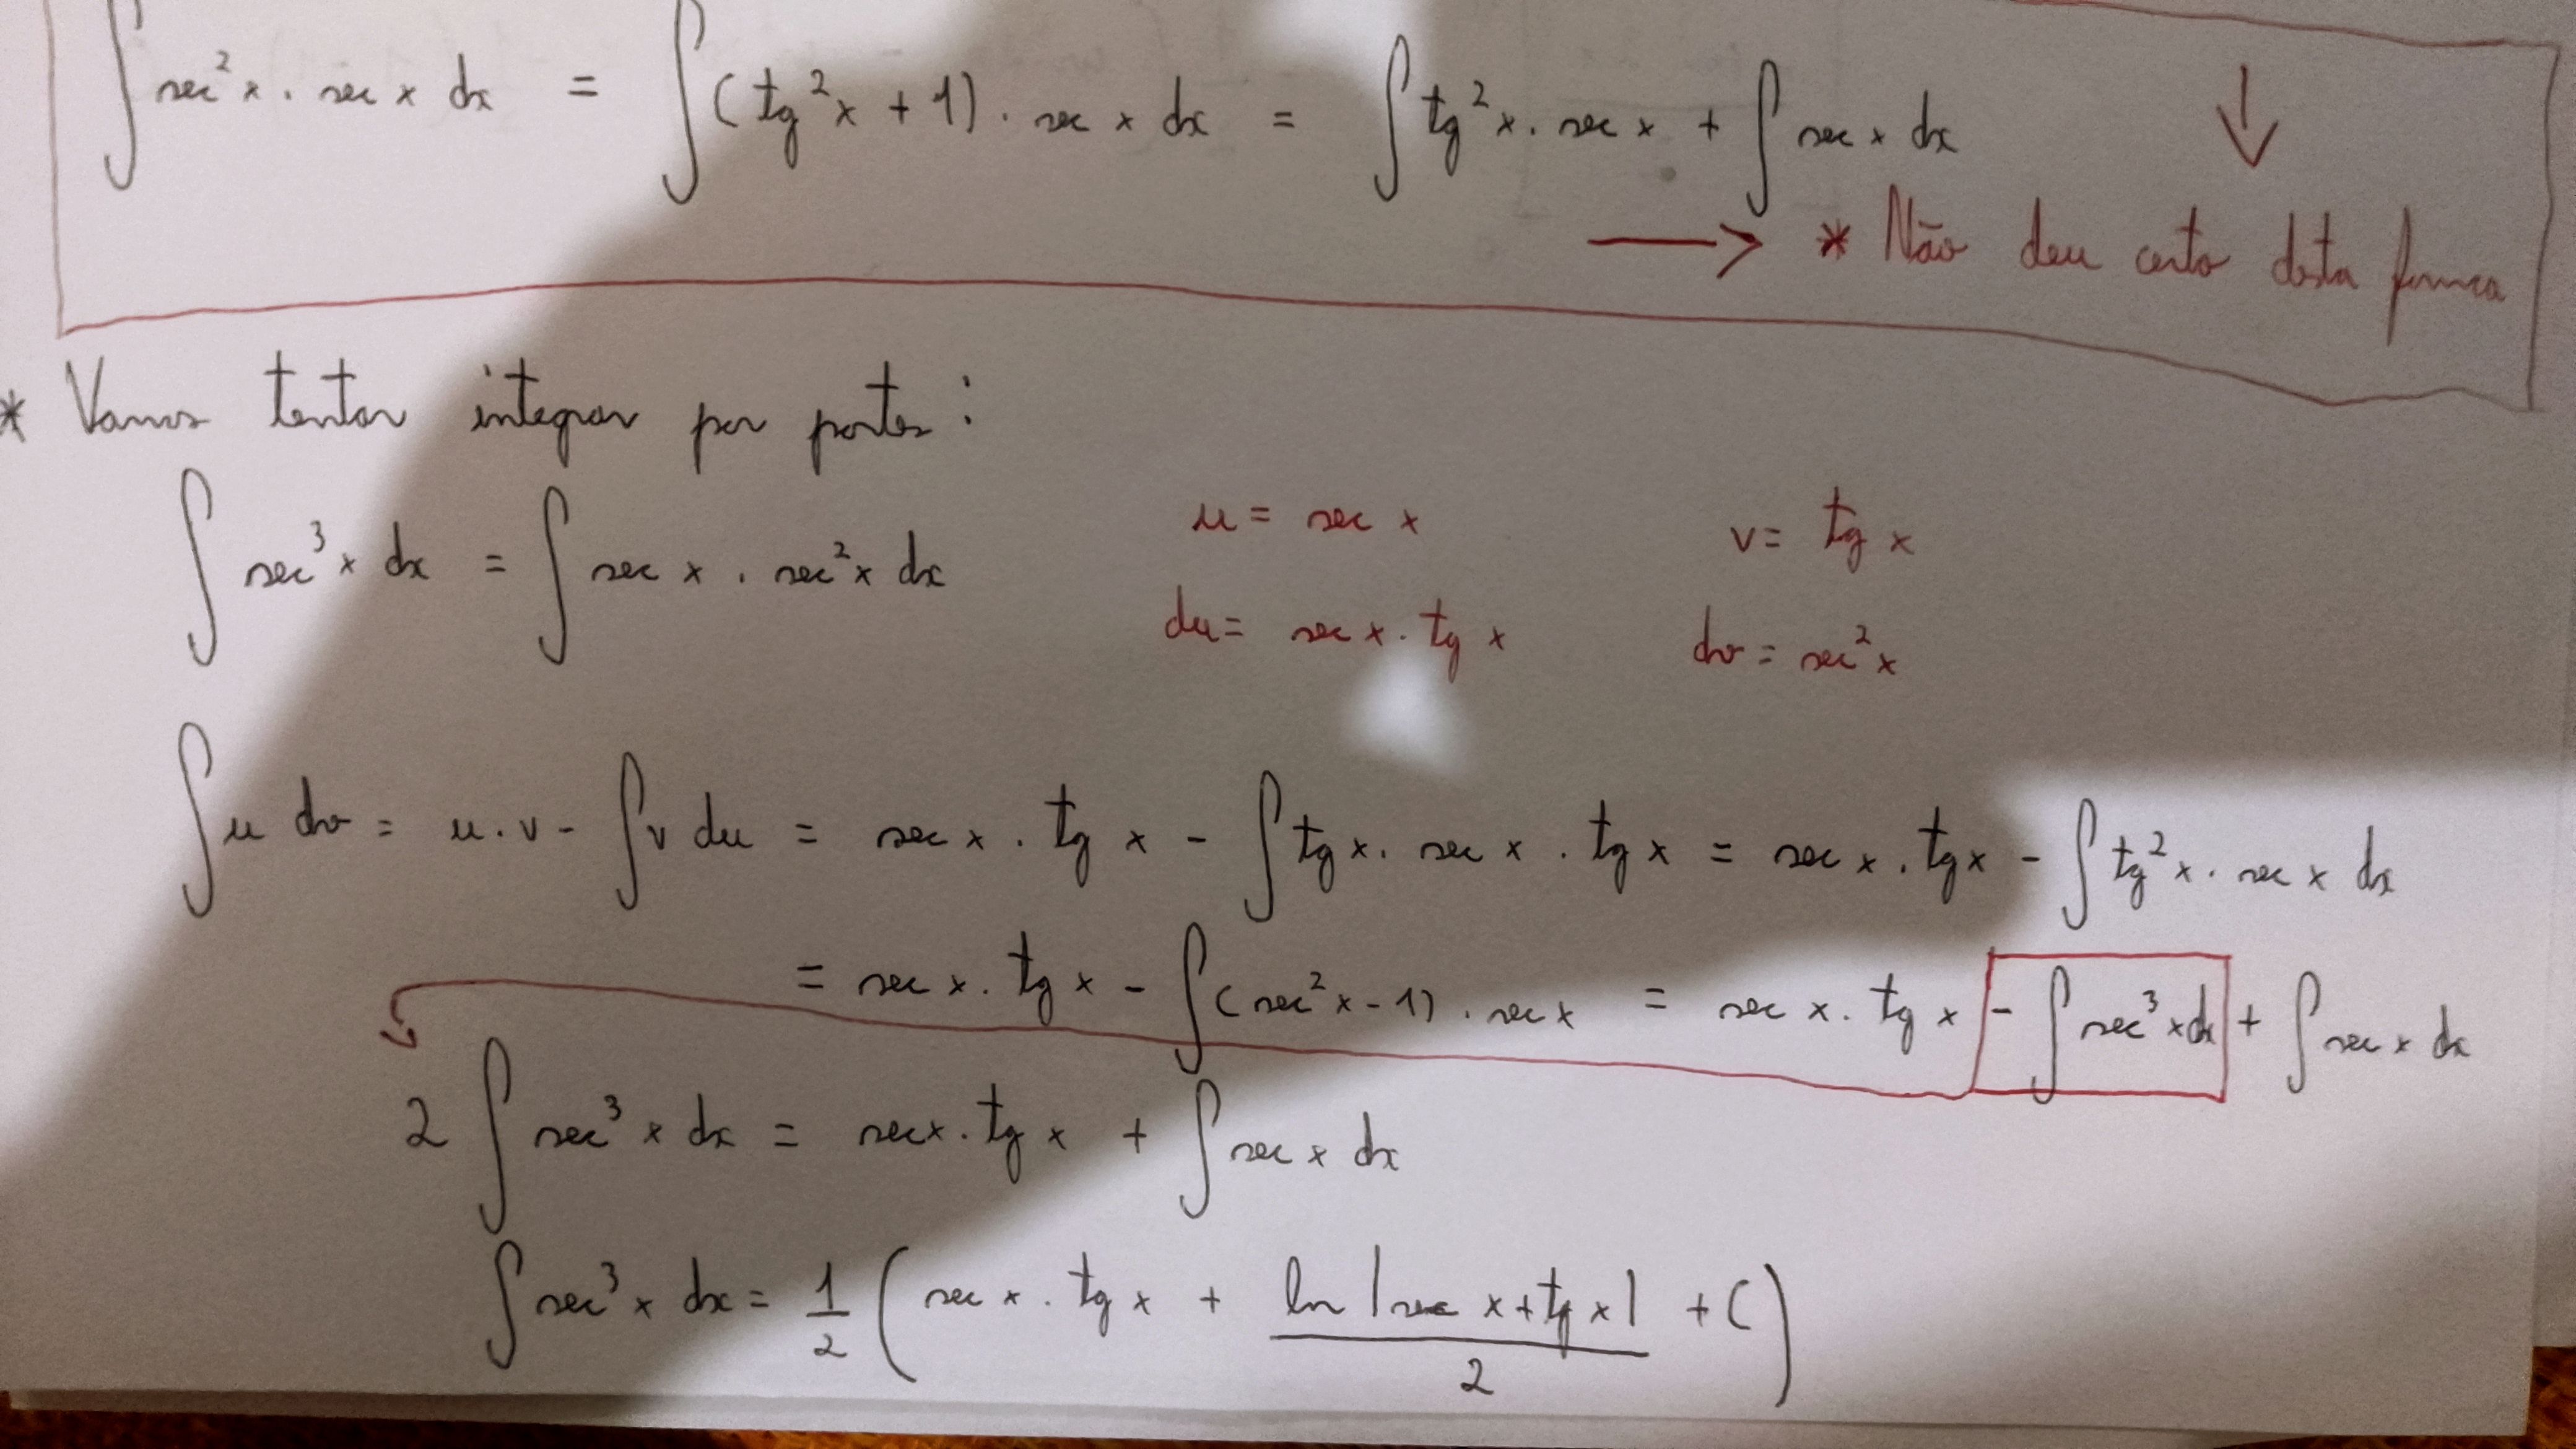 ∫ sec²x . sec x dx = ∫ (tg²x + 1) . sec x dx = ∫ tg²x . sec x + ∫ sec x dx
↓
→ * Não deu certo desta forma
* Vamos tentar integrar por partes :
∫ sec³x dx = ∫ sec x . sec²x dx
u = sec x v = tg x
du = sec x . tg x dv = sec²x
∫ u dv = u . v - ∫ v du = sec x . tg x - ∫ tg x . sec x . tg x = sec x . tg x - ∫ tg²x . sec x dx
= sec x . tg x - ∫ (sec²x - 1) . sec x = sec x . tg x - ∫ sec³x dx + ∫ sec x dx
2 ∫ sec³x dx = sec x . tg x + ∫ sec x dx
∫ sec³x dx = 1/2 ( sec x . tg x + ln |sec x + tg x| / 2 + C )